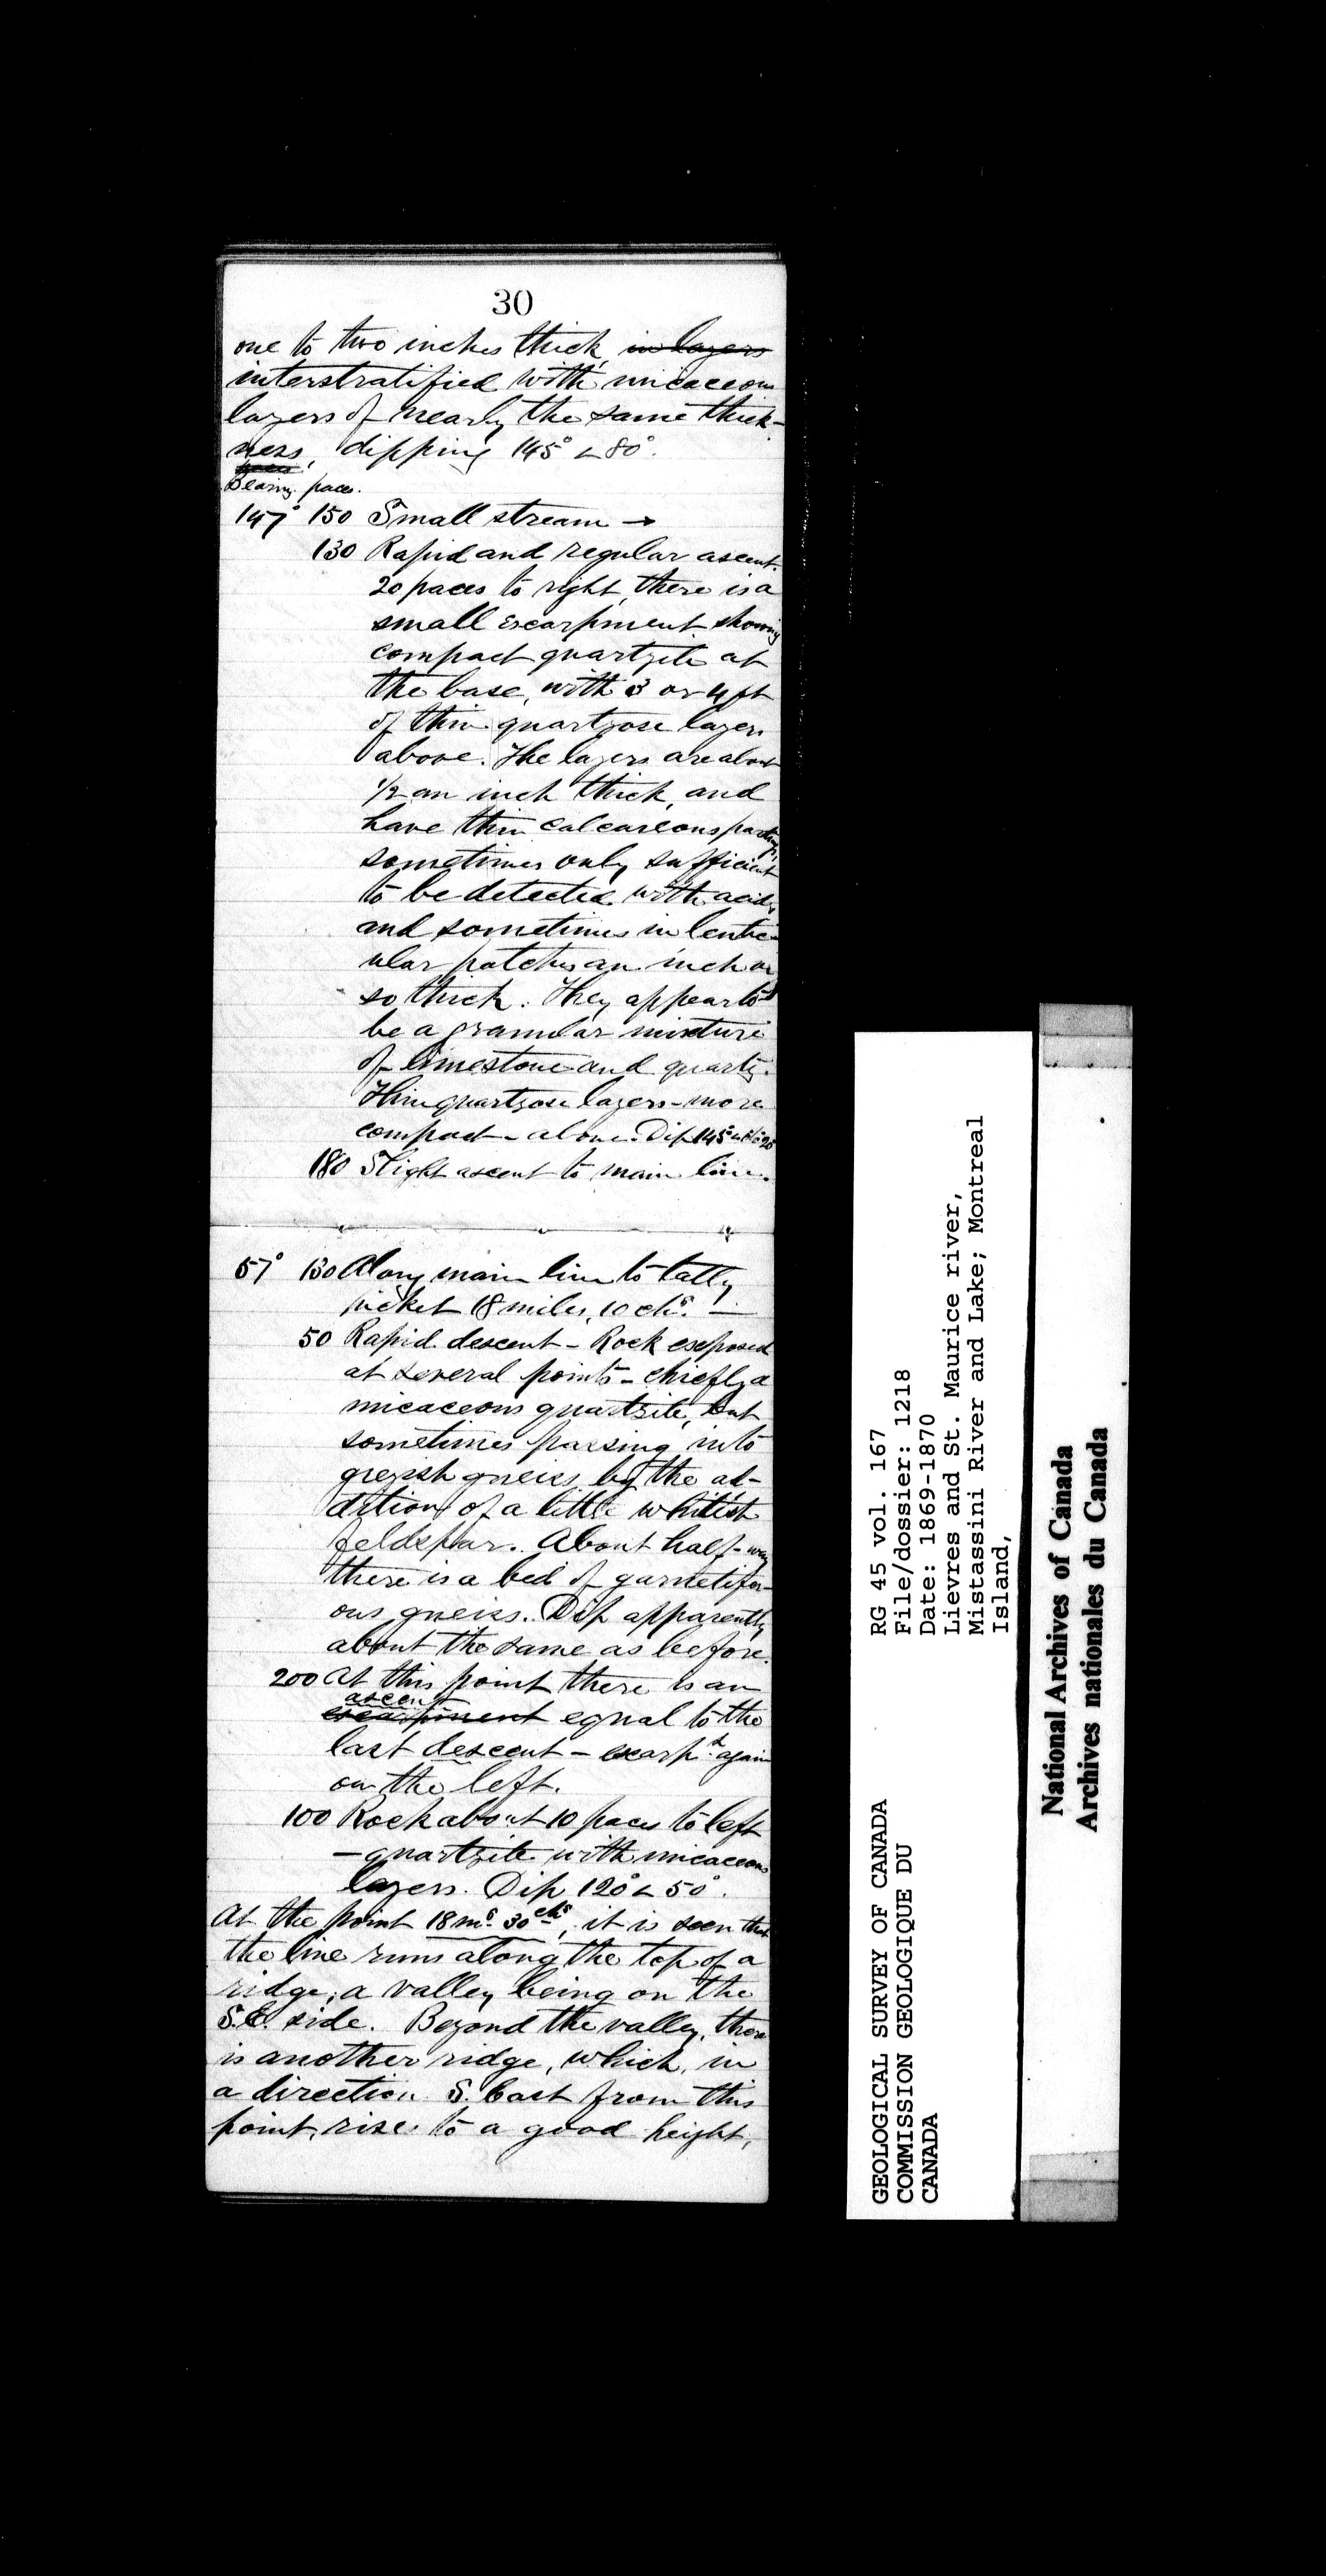 30
one to two inches thick, in layers
interstratified with micaceous
layers of nearly the same thick-
ness, dipping 145° ∠ 80°.
Bearing. paces.
147° 150 Small stream →
130 Rapid and regular ascent.
20 paces to right, there is a
small escarpment showing
compact quartzite at
the base, with 3 or 4 ft
of thin quartzose layers
above. The layers are about
1/2 an inch thick, and
have thin calcareous partings,
sometimes only sufficient
to be detected with acid,
and sometimes in lentic-
ular patches an inch or
so thick. They appear to
be a granular mixture
of limestone and quartz.
Thin quartzose layers - more
compact - above. Dip 145°
180 Slight ascent to main line.
57° 130 Along main line to tally
picket 18 miles, 10 chs. —
50 Rapid descent - Rock exposed
at several points - chiefly a
micaceous quartzite, but
sometimes passing into
greyish gneiss by the ad-
dition of a little whitish
feldspar. About half-way
there is a bed of garnetifer-
ous gneiss. Dip apparently
about the same as before.
200 At this point there is an
ascent
escarpment equal to the
last descent - escarpt. again
on the left.
100 Rock about 10 paces to left
- quartzite with micaceous
layers. Dip 120° ∠ 50°.
At the point 18 ms. 30 chs, it is seen that
the line runs along the top of a
ridge, a valley being on the
S.E. side. Beyond the valley, there
is another ridge, which, in
a direction S. East from this
point, rises to a good height,
GEOLOGICAL SURVEY OF CANADA
COMMISSION GEOLOGIQUE DU
CANADA
RG 45 vol. 167
File/dossier: 1218
Date: 1869-1870
Lievres and St. Maurice river,
Mistassini River and Lake; Montreal
Island,
National Archives of Canada
Archives nationales du Canada